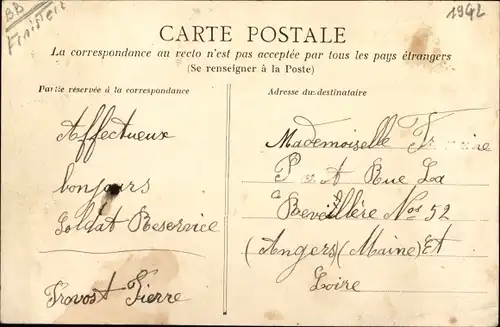 BB
Finistère
1942
CARTE POSTALE
La correspondance au recto n'est pas acceptée par tous les pays étrangers
(Se renseigner à la Poste)
Partie réservée à la correspondance
Affectueux
bonjours
Soldat Reservice
Provost Pierre
Adresse du destinataire
Mademoiselle
A Rue La
Reveillère Nos 52
Angers (Maine) Et
Loire